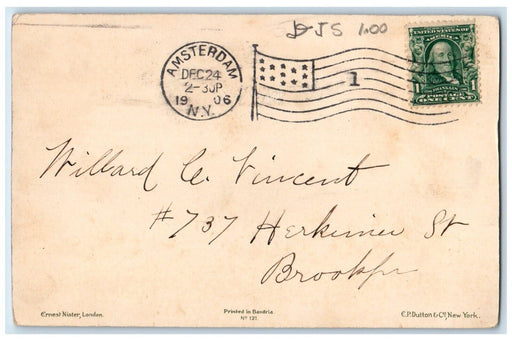 JS 1.00
AMSTERDAM
DEC 24
2-30P
1906
N.Y.
1
UNITED STATES OF AMERICA
FRANKLIN
1 POSTAGE 1
ONE CENT
Willard C. Vincent
#737 Herkimer St
Brooklyn
Ernest Nister, London.
Printed in Bavaria
No 121.
E.P. Dutton & Co, New York.